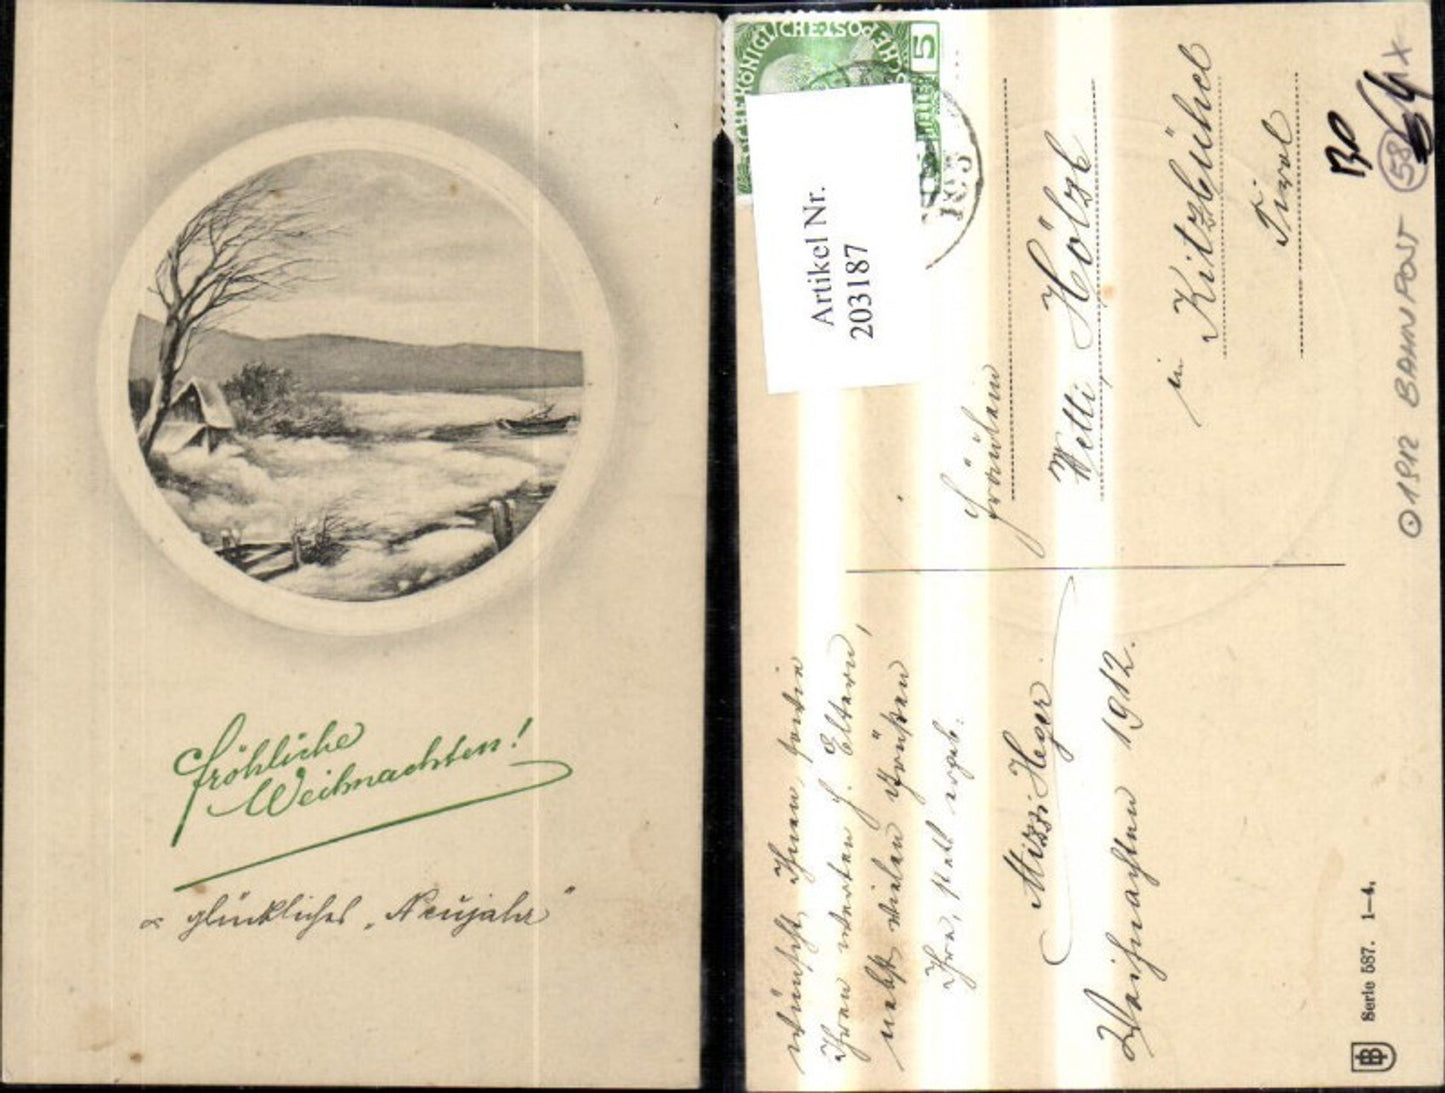 Fröhliche
Weihnachten!
& glückliches „Neujahr“
ICHE KÖNIGLICHE POST
5
Artikel Nr.
203187
Fräulein
Hölzl
in Kitzbühel
Tirol
BP
58
O 1912 BAHNPOST
wünscht Ihnen, sowie
Ihren werten H. Eltern,
nebst vielen Grüßen
Ihre, stets ergeb.
Mizzi Heger
Weihnachten 1912.
Serie 587. 1—4.